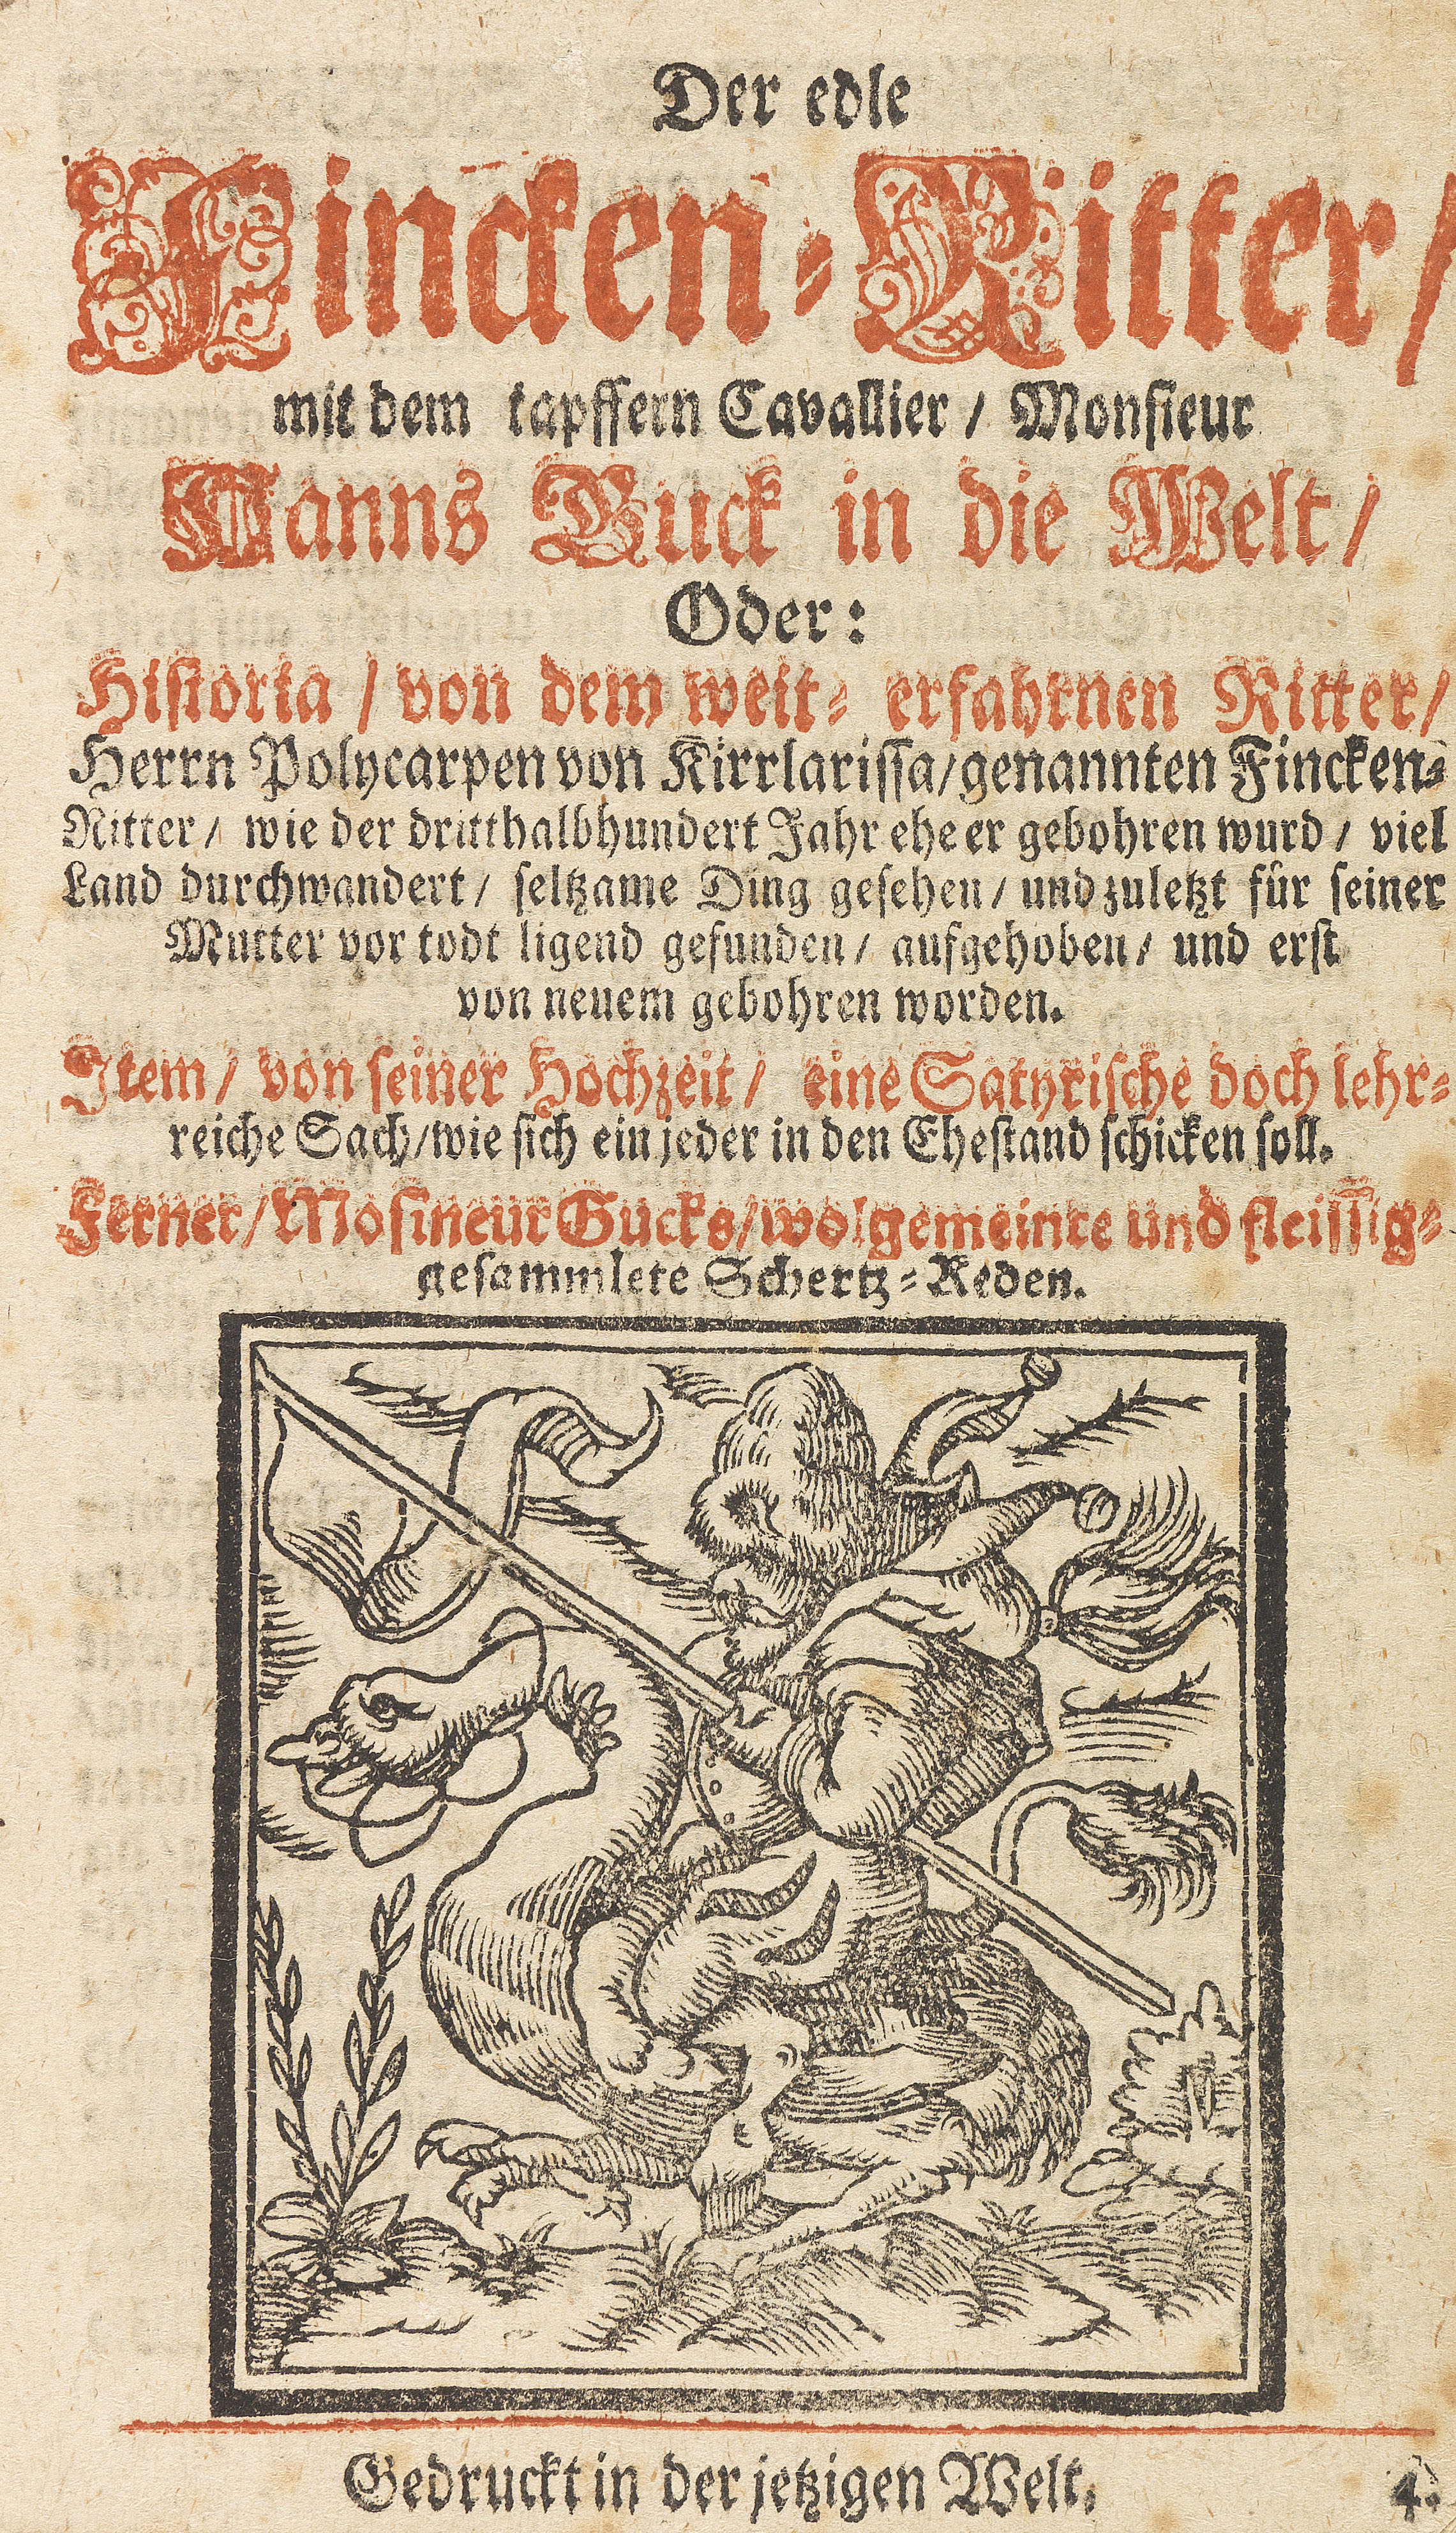 Der edle
Fincken-Ritter/
mit dem tapffern Cavallier / Monsieur
Hanns Guck in die Welt /
Oder:
Historia / von dem weit- erfahrnen Ritter/
Herrn Polycarpen von Kirrlarissa/genannten Fincken-
Ritter / wie der dritthalbhundert Jahr ehe er gebohren wurd / viel
Land durchwandert / seltzame Ding gesehen / und zuletzt für seiner
Mutter vor todt ligend gefunden / aufgehoben / und erst
von neuem gebohren worden.
Item / von seiner Hochzeit / eine Satyrische doch lehr-
reiche Sach/wie sich ein jeder in den Ehestand schicken soll.
Ferner/Mosineur Gucks/wolgemeinte und fleissig-
gesammlete Schertz-Reden.
Gedruckt in der jetzigen Welt,
4.